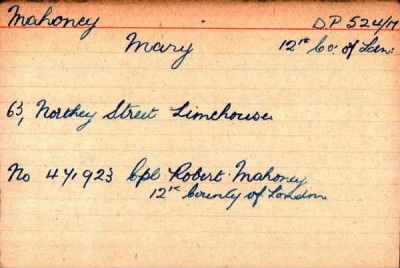 Mahoney D.P 524/M
Mary 12th Co. of Lon:
63, Northey Street Limehouse
No 47,923 Cpl Robert Mahoney
12th County of London